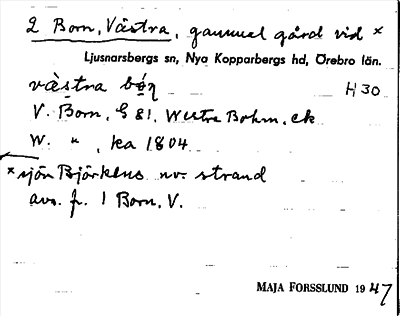 2 Born, Västra, gammal gård vid ×
Ljusnarsbergs sn, Nya Kopparbergs hd, Örebro län.
västra bo̜n H30
V. Born, G 81, Westra Bohrn, ek
W. " , ka 1804
× sjön Björkens nv. strand
avs. fr. 1 Born, V.
MAJA FORSSLUND 1947